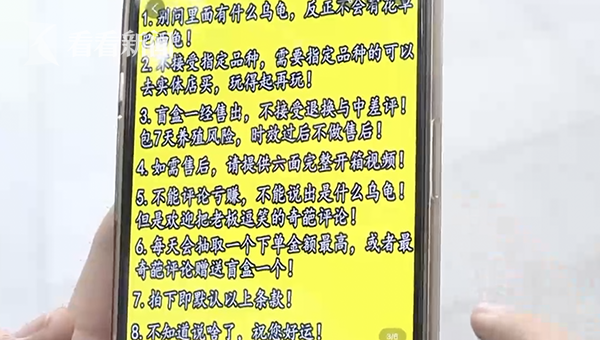 看看新闻
1. 别问里面有什么乌龟，反正不会有花草
巴西龟！
2. 不接受指定品种，需要指定品种的可以
去实体店买，玩得起再玩！
3. 盲盒一经售出，不接受退换与中差评！
包7天养殖风险，时效过后不做售后！
4. 如需售后，请提供六面完整开箱视频！
5. 不能评论亏赚，不能说出是什么乌龟！
但是欢迎把老板逗笑的奇葩评论！
6. 每天会抽取一个下单金额最高，或者最
奇葩评论赠送盲盒一个！
7. 拍下即默认以上条款！
8. 不知道说啥了，祝您好运！